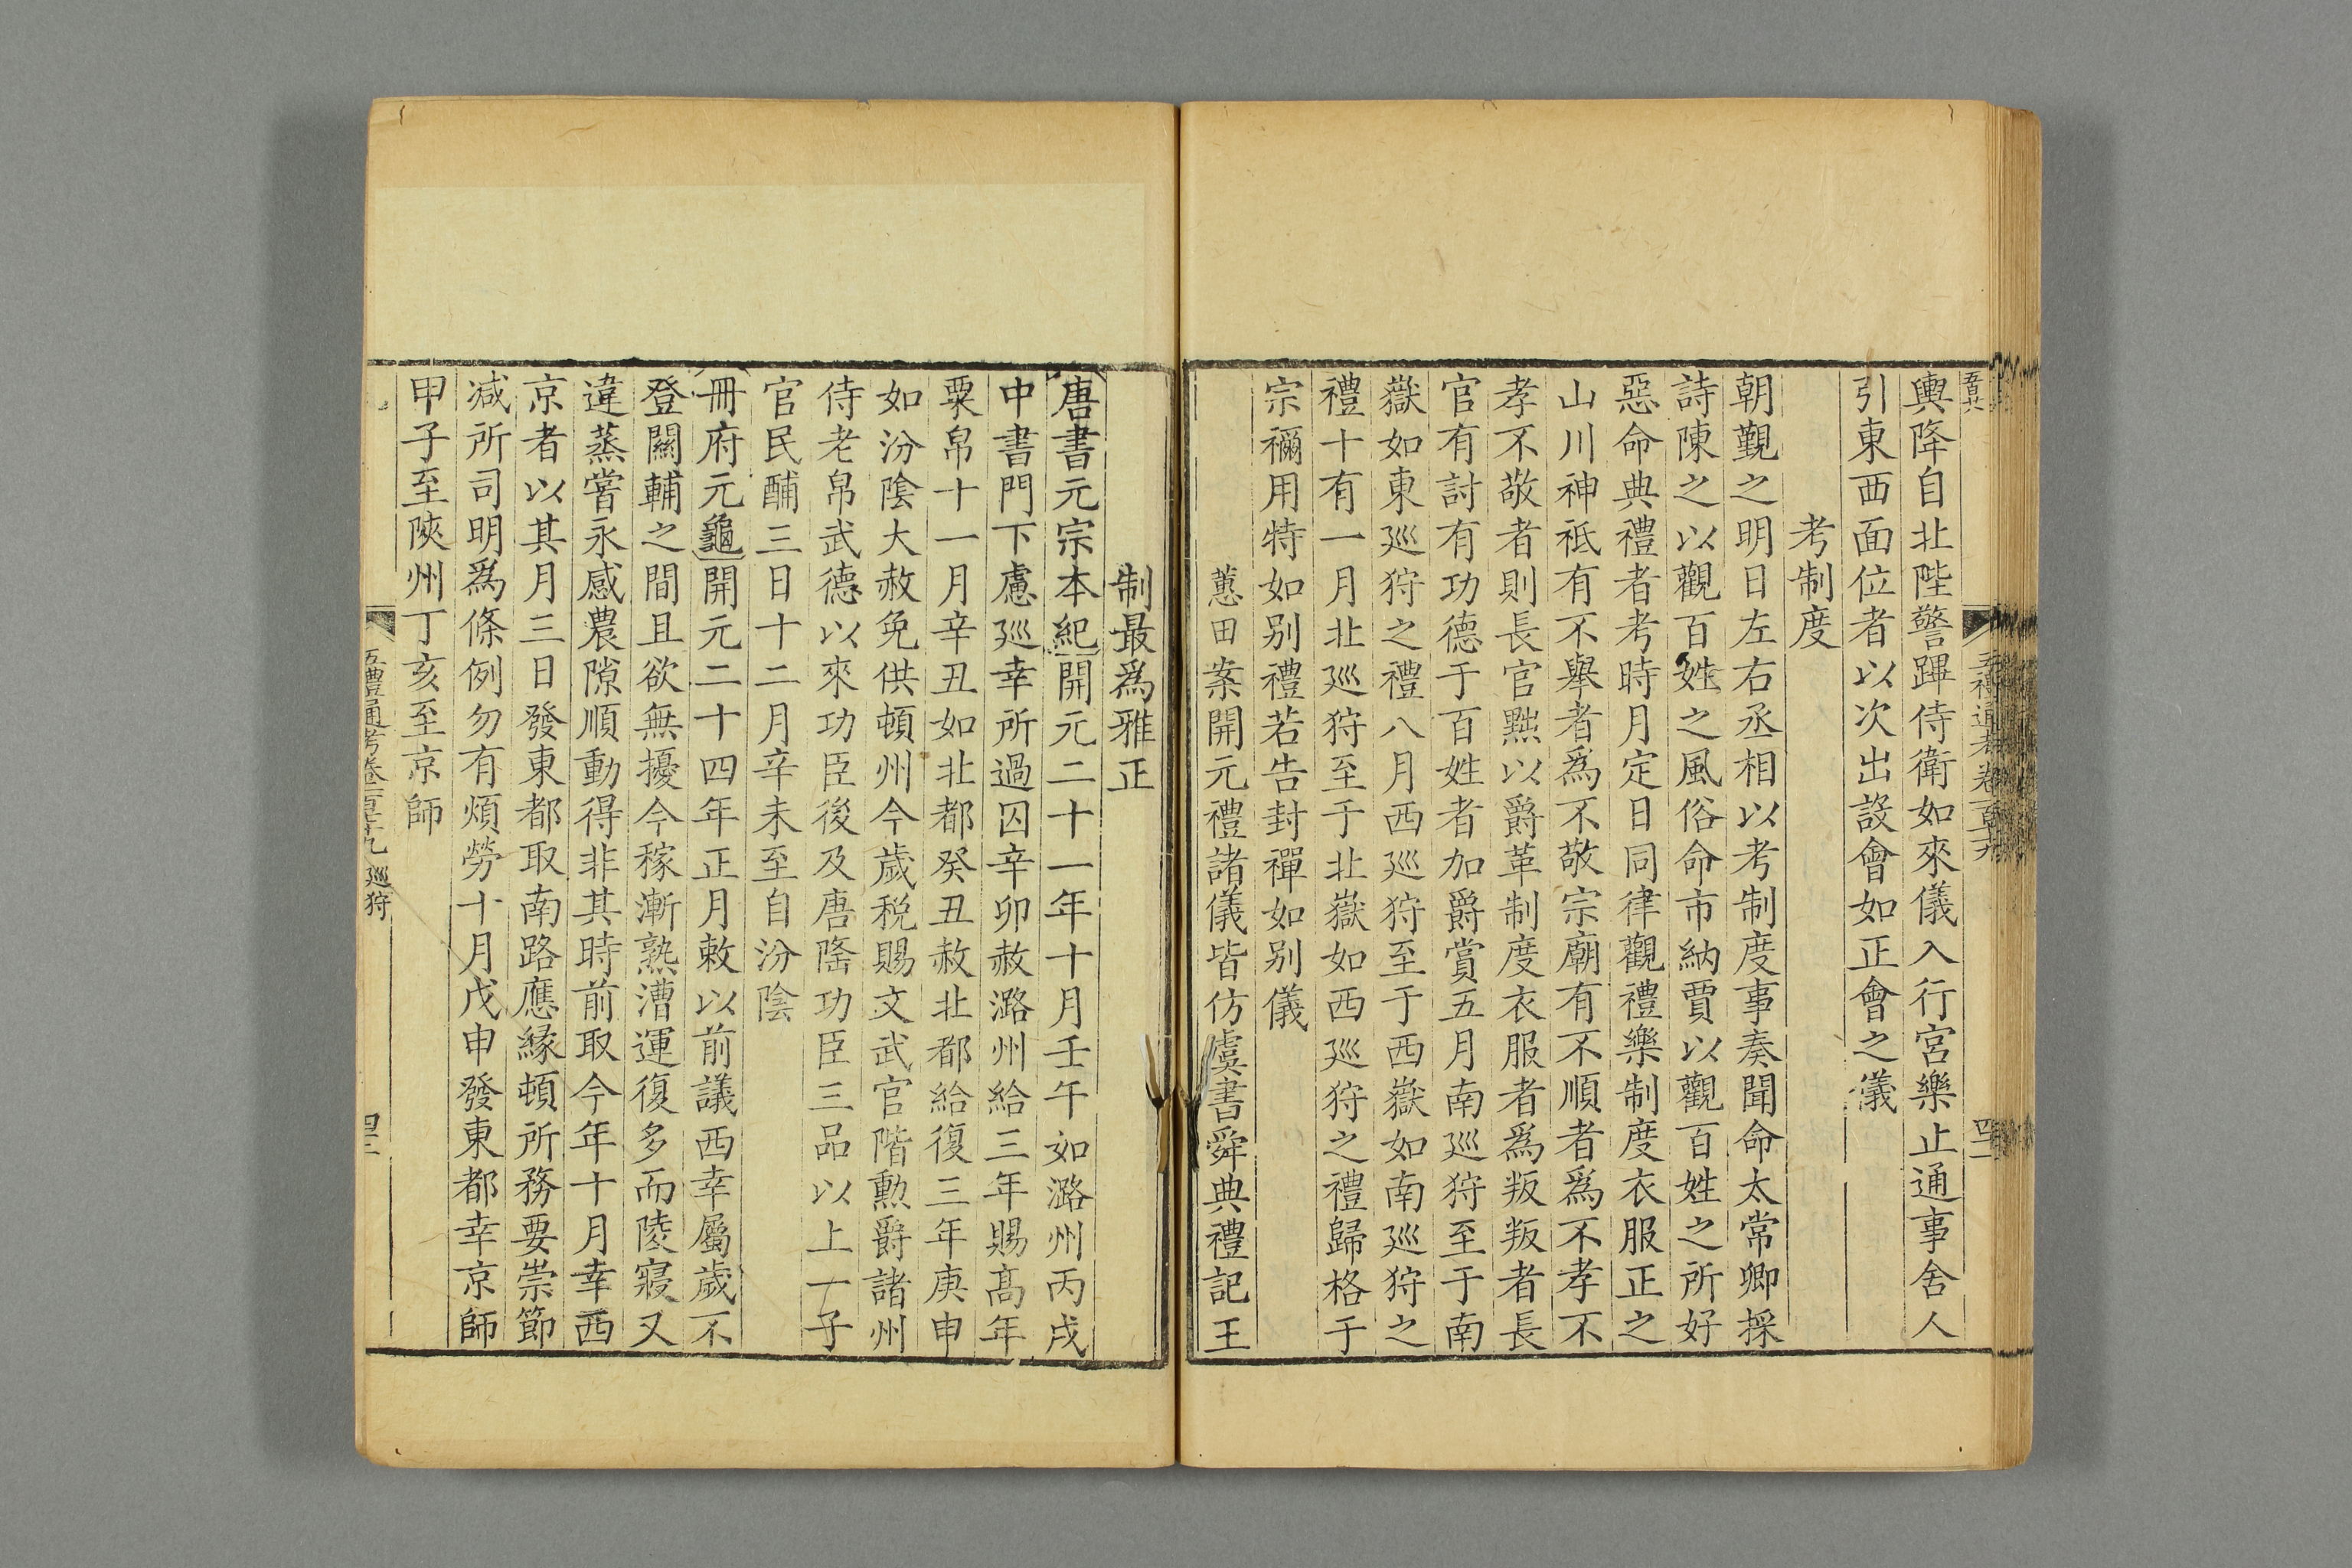 輿降自北陛警蹕侍衛如來儀入行宮樂止通事舍人
引東西面位者以次出設會如正會之儀
考制度
朝覲之明日左右丞相以考制度事奏聞命太常卿採
詩陳之以觀百姓之風俗命市納賈以觀百姓之所好
惡命典禮者考時月定日同律觀禮樂制度衣服正之
山川神祇有不舉者爲不敬宗廟有不順者爲不孝不
孝不敬者則長官黜以爵革制度衣服者爲叛叛者長
官有討有功德于百姓者加爵賞五月南巡狩至于南
嶽如東巡狩之禮八月西巡狩至于西嶽如南巡狩之
禮十有一月北巡狩至于北嶽如西巡狩之禮歸格于
宗禰用特如別禮若告封禪如別儀
蕙田案開元禮諸儀皆仿虞書舜典禮記王
制最爲雅正
唐書元宗本紀開元二十一年十月壬午如潞州丙戌
中書門下慮巡幸所過囚辛卯赦潞州給三年賜髙年
粟帛十一月辛丑如北都癸丑赦北都給復三年庚申
如汾陰大赦免供頓州今歲稅賜文武官階勲爵諸州
侍老帛武德以來功臣後及唐隆功臣三品以上一子
官民酺三日十二月辛未至自汾陰
冊府元龜開元二十四年正月敕以前議西幸屬歲不
登關輔之間且欲無擾今稼漸熟漕運復多而陵寢又
違蒸嘗永感農隙順動得非其時前取今年十月幸西
京者以其月三日發東都取南路應緣頓所務要崇節
减所司明爲條例勿有煩勞十月戊申發東都幸京師
甲子至陝州丁亥至京師
五禮通考卷一百七十九 巡狩
四十二